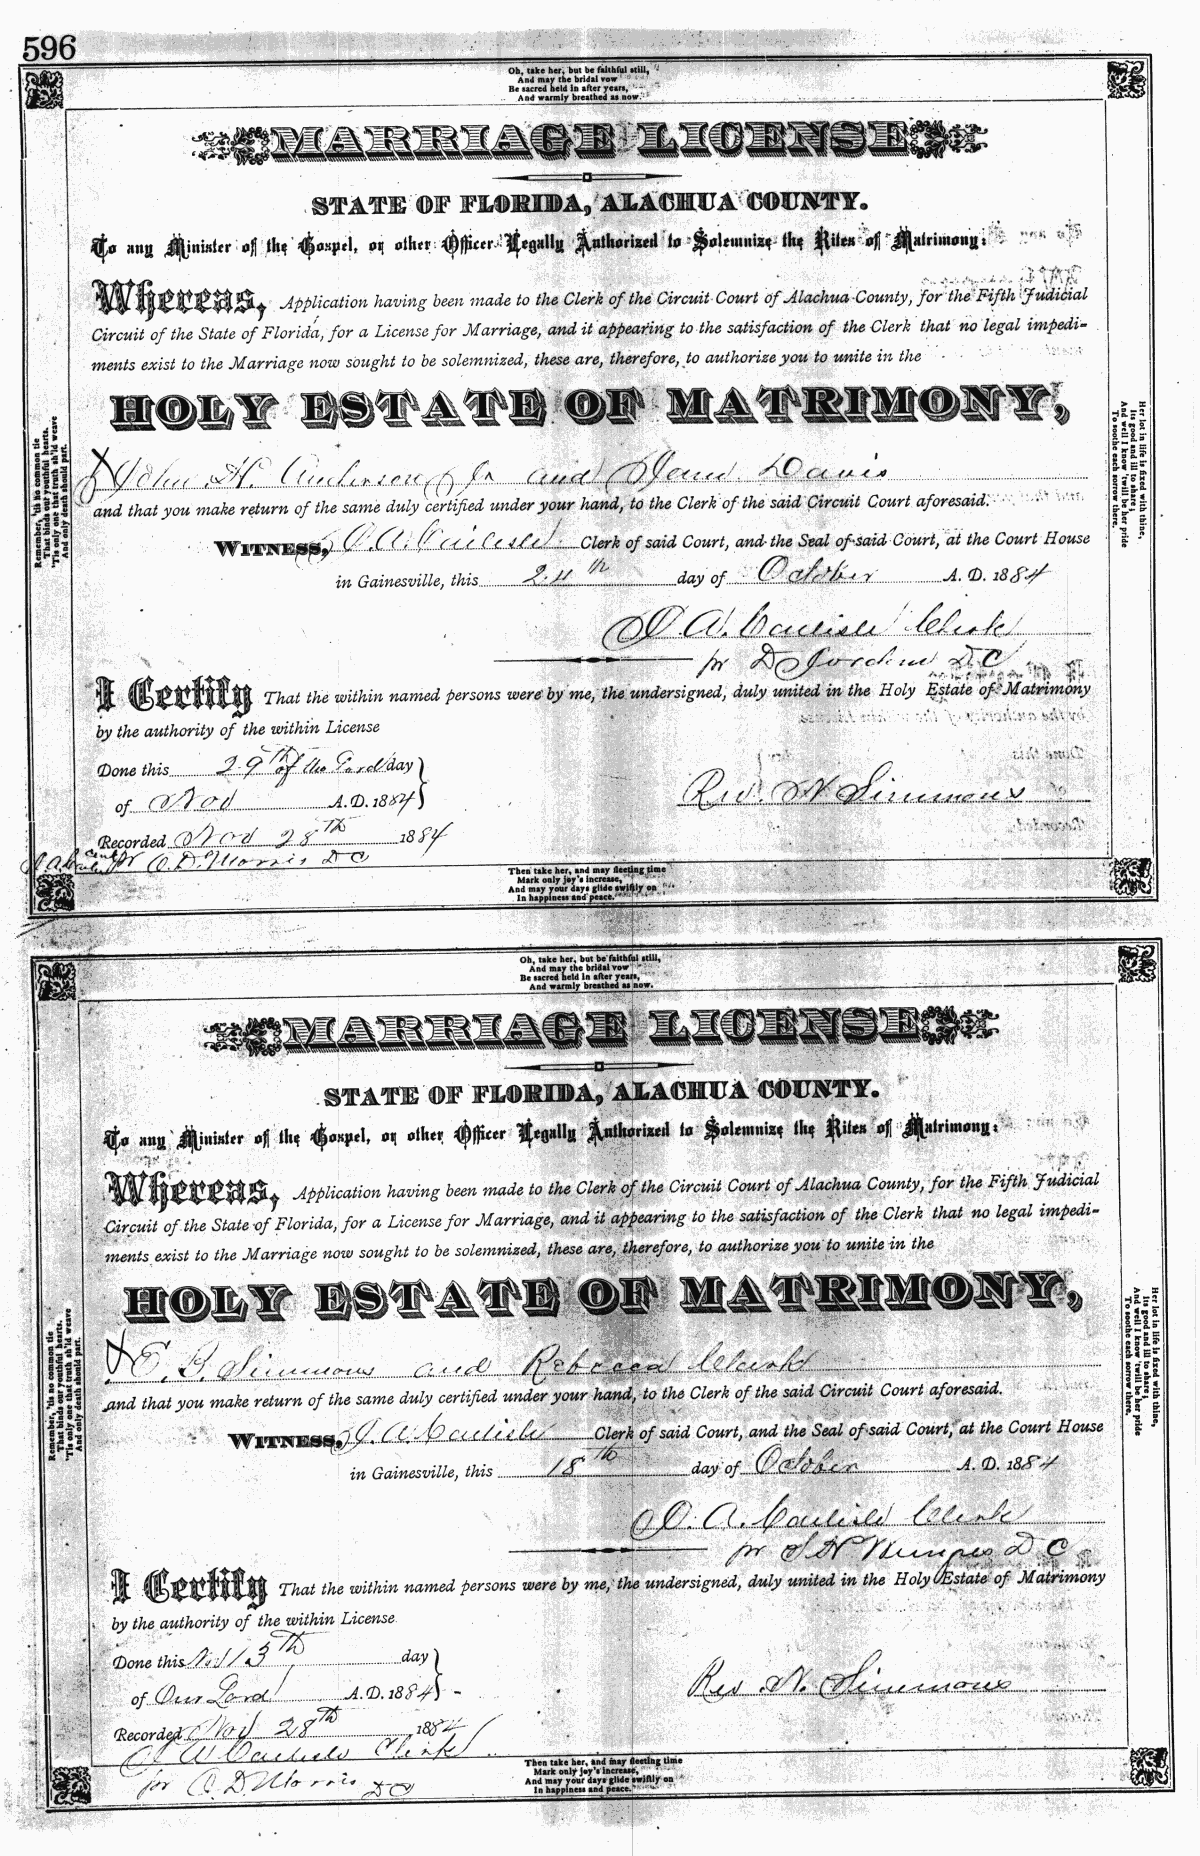 596
Oh, take her, but be faithful still,
And may the bridal vow
Be sacred held in after years,
And warmly breathed as now.
MARRIAGE LICENSE
STATE OF FLORIDA, ALACHUA COUNTY.
To any Minister of the Gospel, or other Officer Legally Authorized to Solemnize the Rites of Matrimony:
Whereas, Application having been made to the Clerk of the Circuit Court of Alachua County, for the Fifth Judicial
Circuit of the State of Florida, for a License for Marriage, and it appearing to the satisfaction of the Clerk that no legal impedi-
ments exist to the Marriage now sought to be solemnized, these are, therefore, to authorize you to unite in the
HOLY ESTATE OF MATRIMONY,
John H. Anderson Jr and Jenn Davis
and that you make return of the same duly certified under your hand, to the Clerk of the said Circuit Court aforesaid.
WITNESS, J. A. Carlisle Clerk of said Court, and the Seal of said Court, at the Court House
in Gainesville, this 24th day of October A. D. 1884
J. A. Carlisle Clerk
pr D Jordan D C
I Certify That the within named persons were by me, the undersigned, duly united in the Holy Estate of Matrimony
by the authority of the within License
Done this 29th of the Lord day
of Nov A.D. 1884
Rev. N Simmons
Recorded Nov 28th 1884
pr C. D. Morris D C
Then take her, and may fleeting time
Mark only joy's increase,
And may your days glide swiftly on
In happiness and peace.
Remember, 'tis no common tie
That binds our youthful hearts,
'Tis only one that truth sh'ld weave
And only death should part.
Her lot in life is fixed with thine,
Its good and ill to share;
And well I know 'twill be her pride
To soothe each sorrow there.
Oh, take her, but be faithful still,
And may the bridal vow
Be sacred held in after years,
And warmly breathed as now.
MARRIAGE LICENSE
STATE OF FLORIDA, ALACHUA COUNTY.
To any Minister of the Gospel, or other Officer Legally Authorized to Solemnize the Rites of Matrimony:
Whereas, Application having been made to the Clerk of the Circuit Court of Alachua County, for the Fifth Judicial
Circuit of the State of Florida, for a License for Marriage, and it appearing to the satisfaction of the Clerk that no legal impedi-
ments exist to the Marriage now sought to be solemnized, these are, therefore, to authorize you to unite in the
HOLY ESTATE OF MATRIMONY,
E. B. Simmons and Rebecca Clark
and that you make return of the same duly certified under your hand, to the Clerk of the said Circuit Court aforesaid.
WITNESS, J. A. Carlisle Clerk of said Court, and the Seal of said Court, at the Court House
in Gainesville, this 18th day of October A. D. 1884
J. A. Carlisle Clerk
pr S H D C
I Certify That the within named persons were by me, the undersigned, duly united in the Holy Estate of Matrimony
by the authority of the within License
Done this Nov 13th day
of Our Lord A.D. 1884
Rev. N. Simmons
Recorded Nov 28th 1884
J A Carlisle Clerk
pr C. D. Morris D C
Then take her, and may fleeting time
Mark only joy's increase,
And may your days glide swiftly on
In happiness and peace.
Remember, 'tis no common tie
That binds our youthful hearts,
'Tis only one that truth sh'ld weave
And only death should part.
Her lot in life is fixed with thine,
Its good and ill to share;
And well I know 'twill be her pride
To soothe each sorrow there.